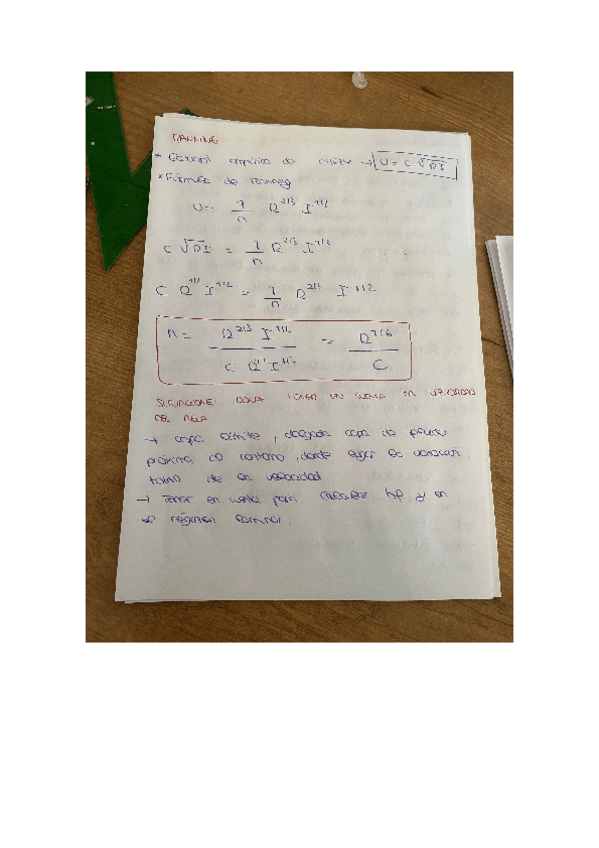 MANNING
* General empírica de CHEZY → U = C √RI
* Fórmula de Manning
U = 1/n R^2/3 I^1/2
C √RI = 1/n R^2/3 I^1/2
C R^1/2 I^1/2 = 1/n R^2/3 I^1/2
n = R^2/3 I^1/2 / C R^1/2 I^1/2 = R^1/6 / C
SITUACIONES DONDE EN CUENTA LA VISCOSIDAD
DEL AGUA
→ capa límite, delgada capa de fluido
próxima al contorno, donde
de la velocidad
→ Tener en cuenta para calcular hf y en
el régimen laminar.